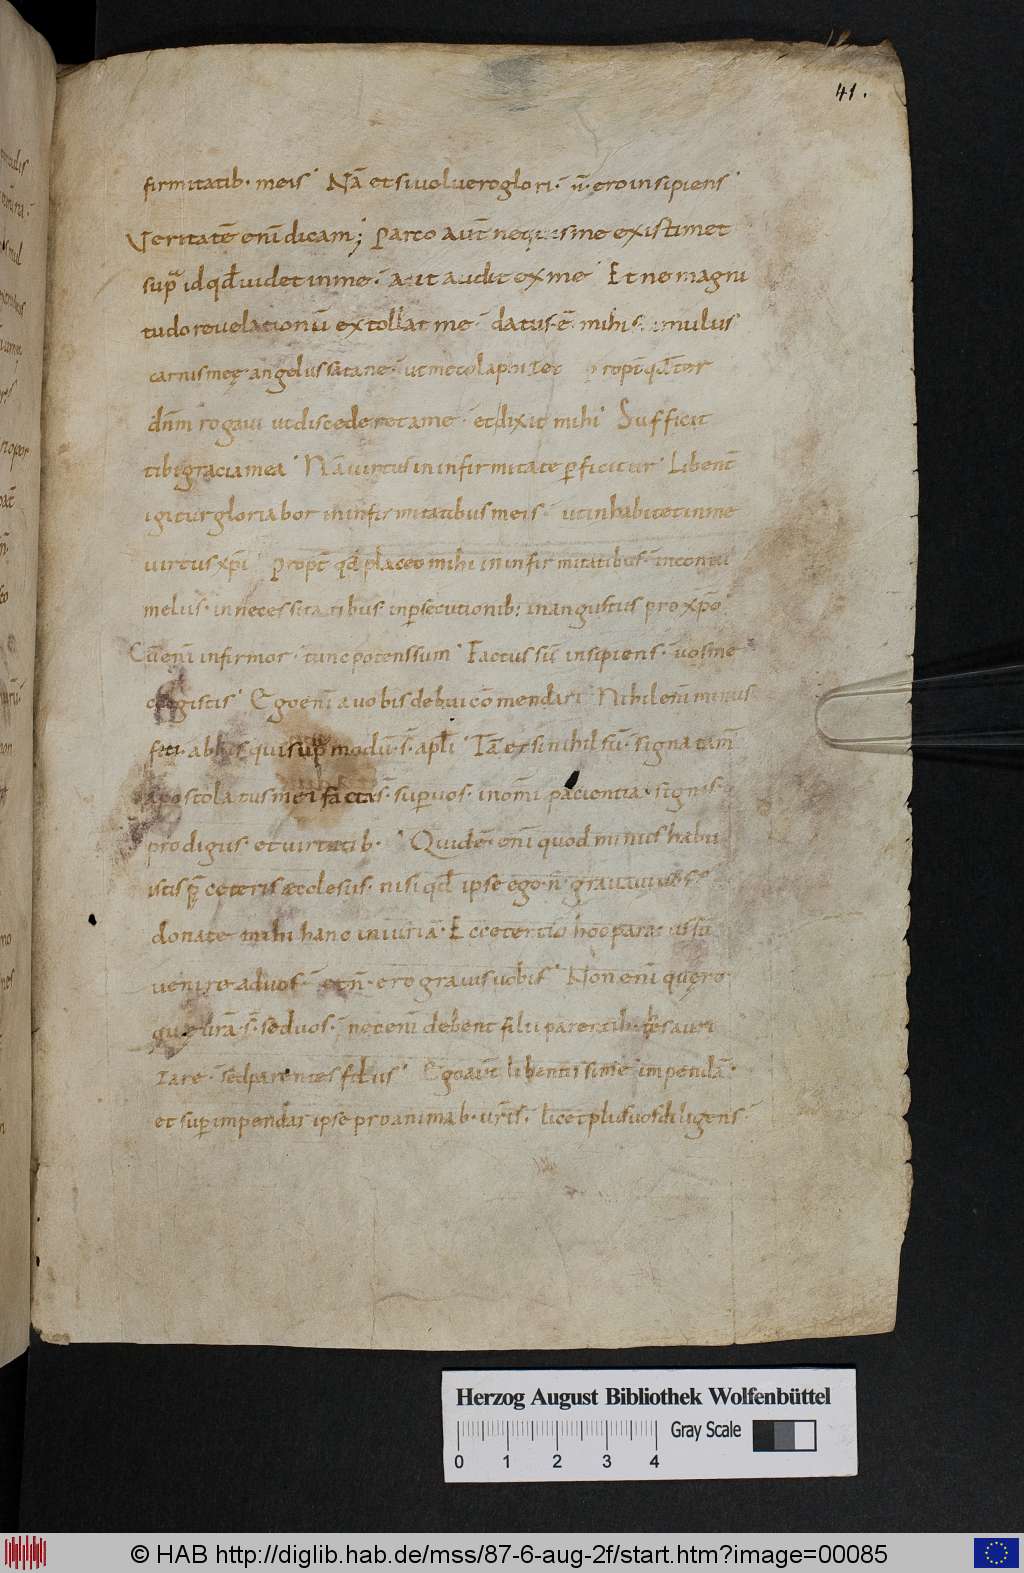 41.
firmitatib· meis· Nā et si voluero glori· n̄· ero insipiens·
Veritatē enī dicam; Parco aut̄ nequis me existimet
supͣ id qd̄ uidet in me· aut audit ex me· Et ne magni
tudo reuelationū extollat me· datus·ē· mihi stimulus
carnis meę angelus satane· ut me colaphizet propt̄ qd̄ ter
dn̄m rogaui ut discederet a me· et dixit mihi· Sufficit
tibi gracia mea· Nā uirtus in infirmitate ꝑficitur· Libent̄
igitur gloriabor in infirmitatibus meis· ut inhabitet in me
uirtus xp̄i· Propt̄ qd̄ placeo mihi in infirmitatibus· in contu
melus· in necessitatibus in ꝑsecutionib; in angustus pro xp̄o·
Cū enī infirmor· tunc potens sum· Factus sū insipiens· uos me
coegistis· Ego enī a uobis debui cōmendari· Nihil enī minus
feci· ab his qui supͣ modū·s̄· apl̄i· Tā etsi nihil sū· signa tam̄
apostolatus mei facta·s̄· suꝑ uos· in om̄i pacientia· signis·
prodigus· et uirtutib· Quid ē· enī quod minus habu
istis p̄ ceteris ecclesus· nisi qd̄ ipse ego·n̄· grauaui uos·
donate mihi hanc iniuriā· Ecce tertio hoc paratus sū
uenire ad uos· et n̄· ero grauis uobis· Non enī quero
que ur̄a·s̄· sed uos· nec enī debent filu parentib· thesauri
zare· sed parentes filus· Ego aut̄ libentissime impendā·
et suꝑimpendar ipse pro animab· ur̄is· licet plus uos diligens·
Herzog August Bibliothek Wolfenbüttel
Gray Scale
0 1 2 3 4
© HAB http://diglib.hab.de/mss/87-6-aug-2f/start.htm?image=00085